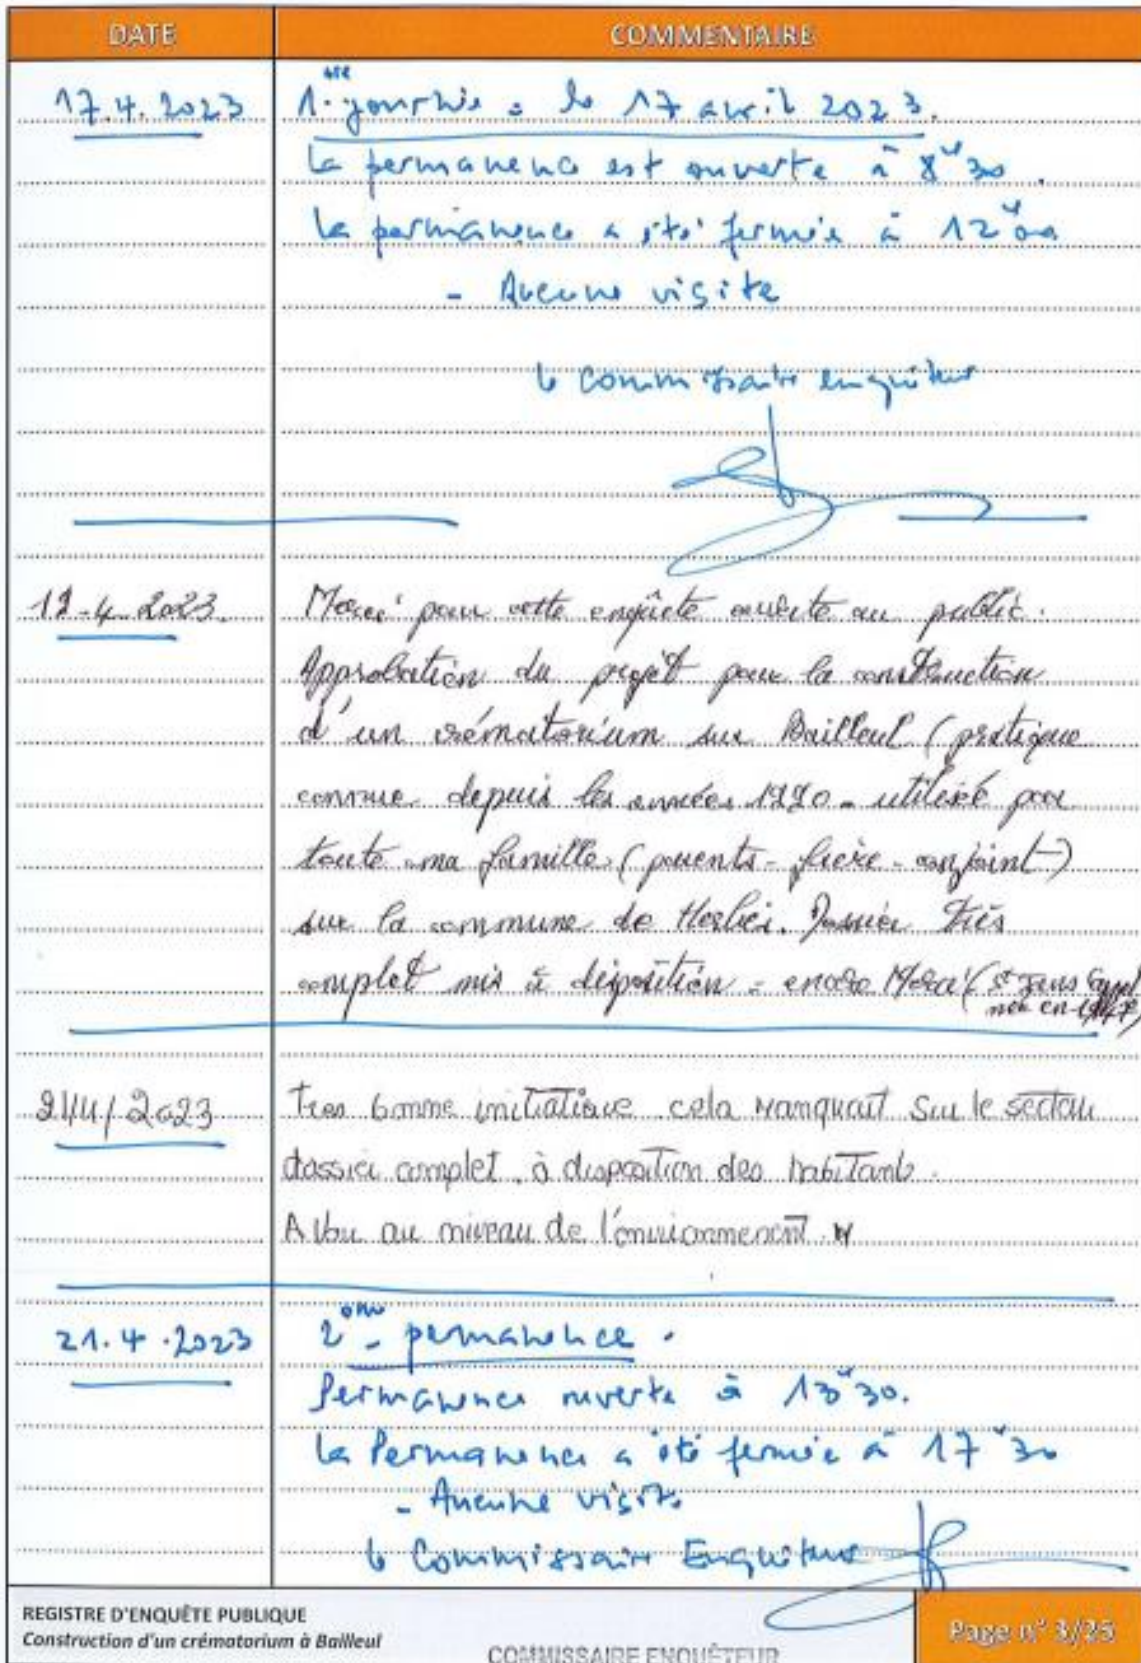 DATE COMMENTAIRE
17.4.2023 1ère journée : le 17 avril 2023.
La permanence est ouverte à 8H30.
La permanence a été fermée à 12H00
- Aucune visite
Le commissaire enquêteur
19-4-2023. Merci pour cette enquête ouverte au public.
Approbation du projet pour la construction
d'un crématorium sur Bailleul (pratique
connue depuis les années 1990 - utilisé pour
toute ma famille (parents - frère - conjoint)
sur la commune de Herlies. Dossier très
complet mis à disposition - encore Merci (St Jans Cappel
née en 1947)
21/4/2023 Tres bonne initiative cela manquait sur le secteur
dossier complet, à disposition des habitants.
A Vou au niveau de l'environnement.
21.4.2023 2ème permanence.
Permanence ouverte à 13H30.
La Permanence a été fermée à 17H30
- Aucune visite
Le Commissaire Enquêteur
REGISTRE D'ENQUÊTE PUBLIQUE
Construction d'un crématorium à Bailleul
COMMISSAIRE ENQUÊTEUR
Page n° 3/25